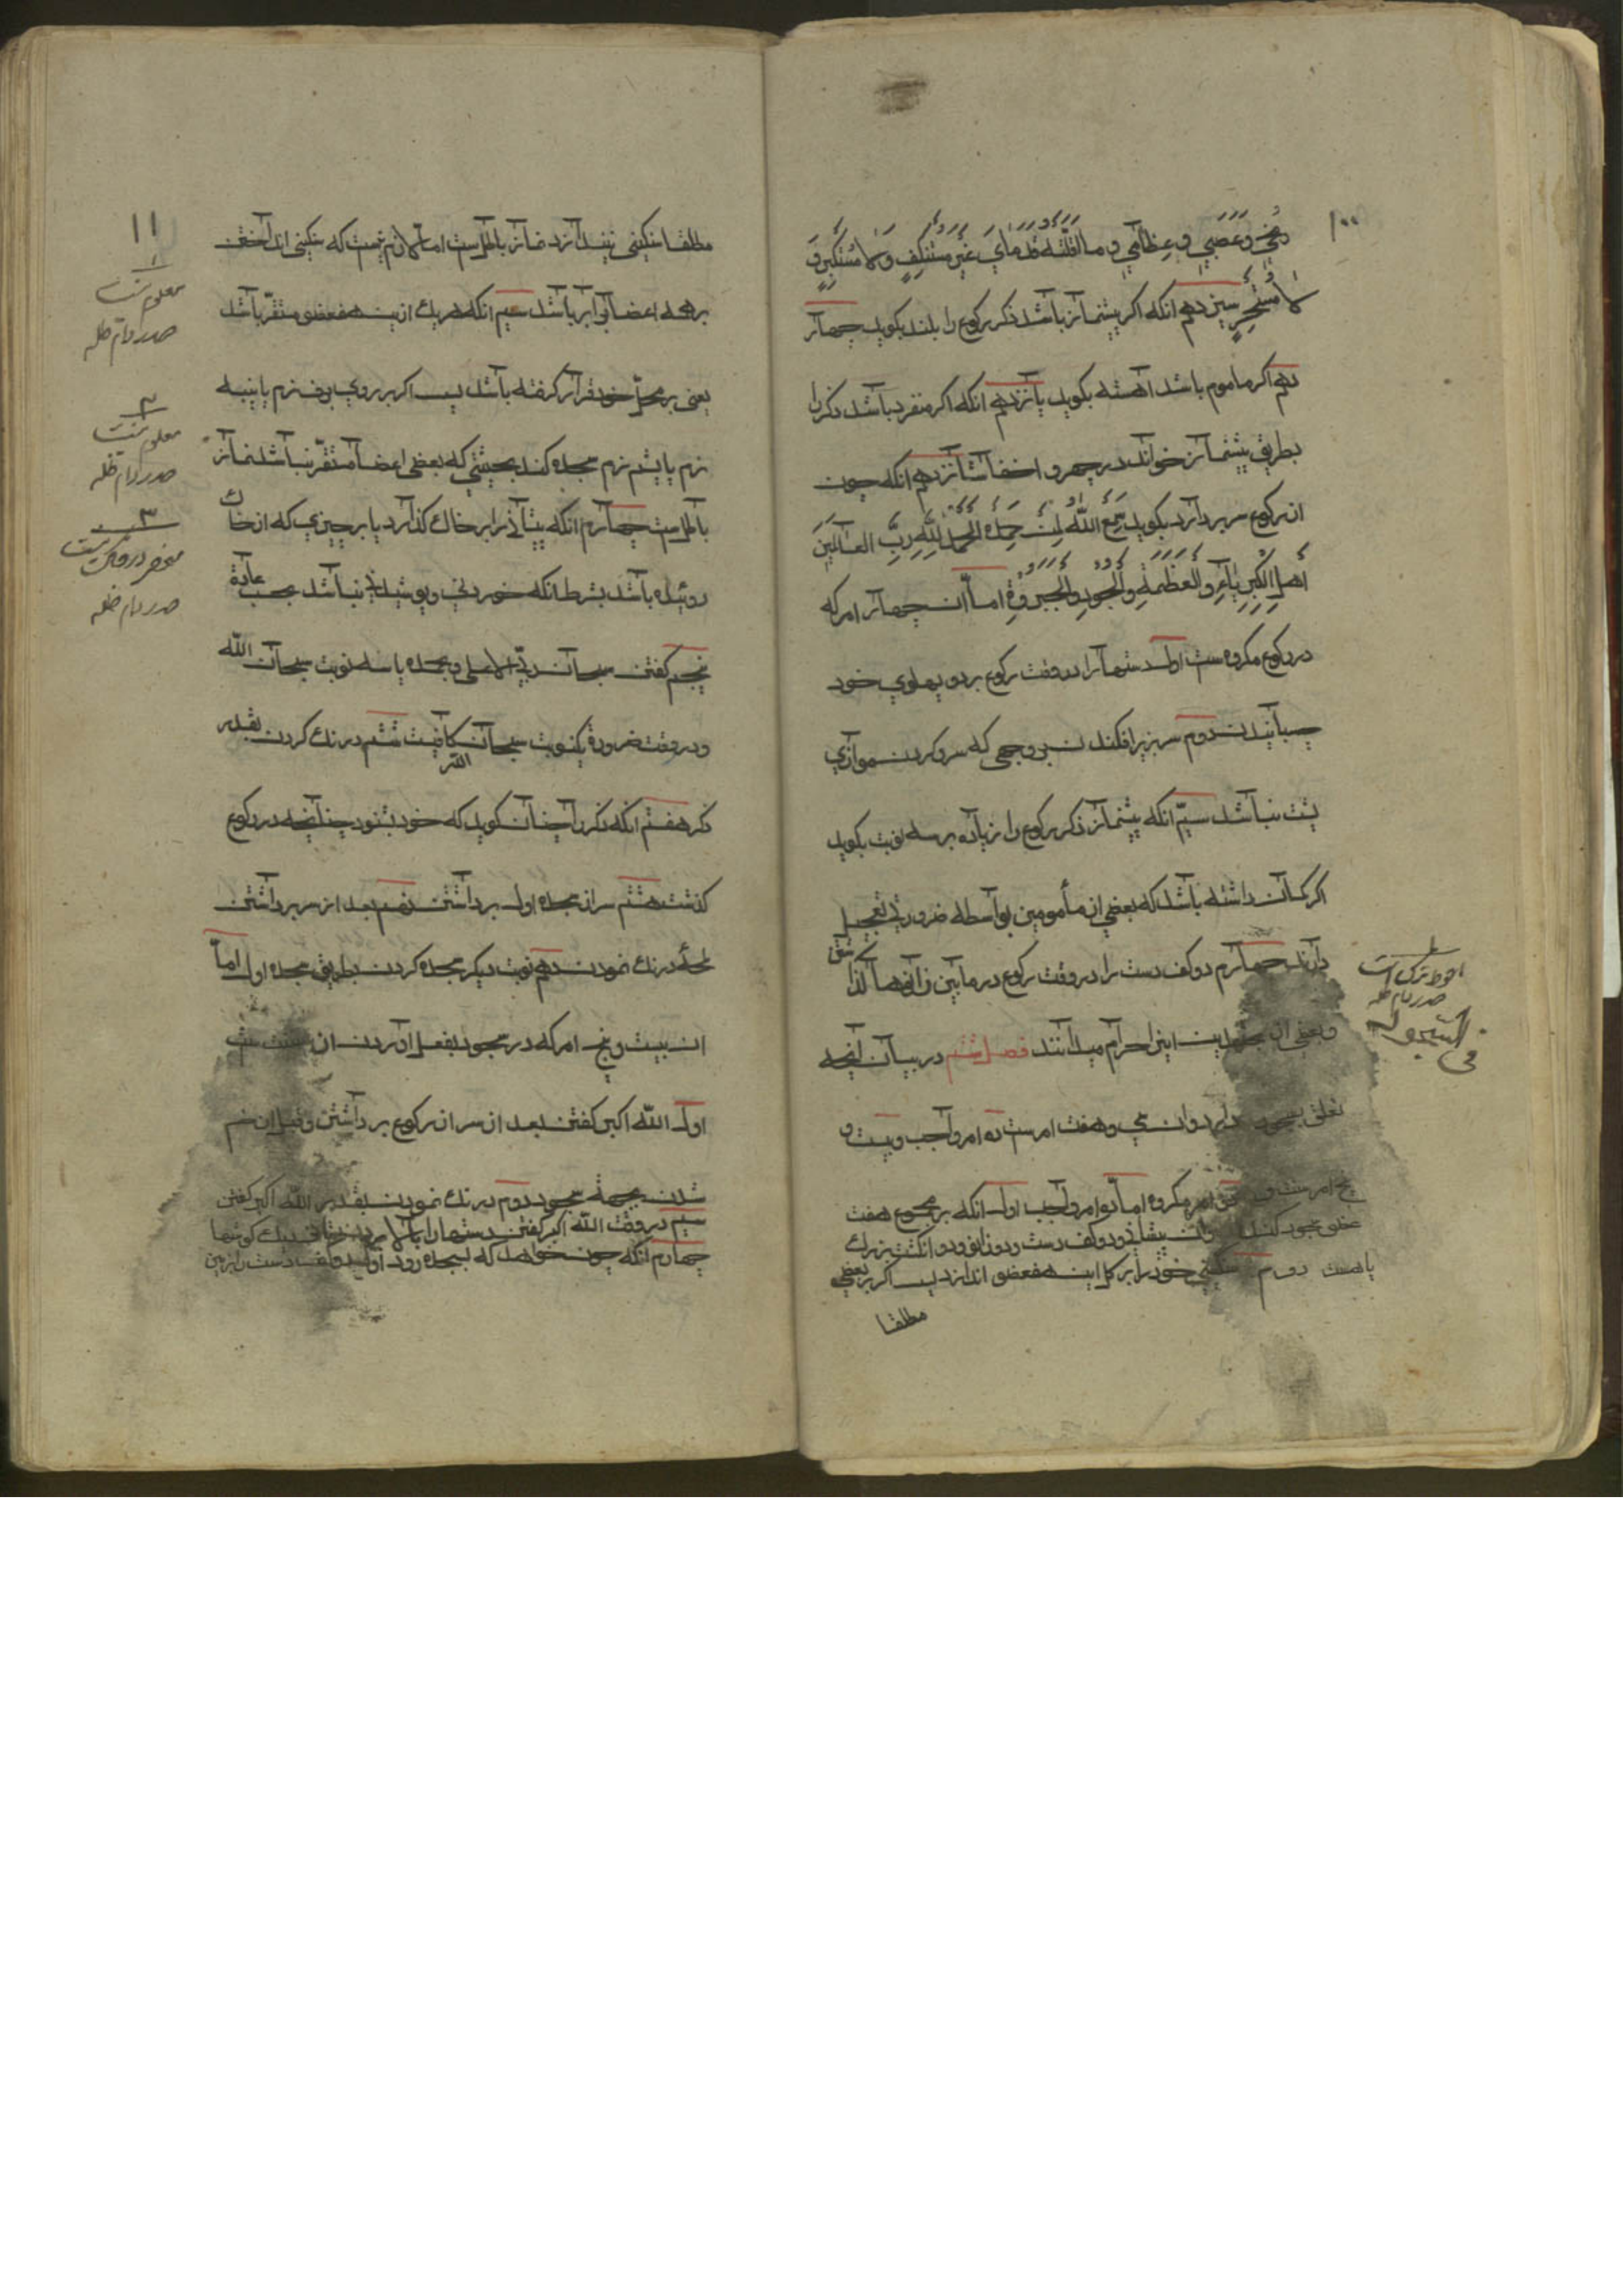 ۱۰۰
ومخي وعَصَبي وعِظامي وما اقلّته قدماي غير مستنكفٍ ولا مستكبرٍ و
لا مستحسرٍ سيزدهم انكه اكر پيشنماز باشد ذكر ركوع را بلند بكويد چهار
دهم اكر ماموم باشد اهسته بكويد پانزدهم انكه اكر منفرد باشد ذكر را
بطريق پيشنماز خواند در جهر و اخفا شانزدهم انكه چون
از ركوع سر بردارد بكويد سمع الله لمن حمده الحمد لله ربّ العالمين
اهل الكبرياء والعظمة والجود والجبروة امّا ان چهار امر كه
در ركوع مكروه ست اول دستها را در وقت ركوع بر دو پهلوي خود
چسبانيدن دوم سر بزير افكندن بر وجهي كه سر و كردن موازي
پشت نباشد سيّم انكه پيشنماز ذكر ركوع را زياده بر سه نوبت بكويد
اكر كمان داشته باشد كه بعضي از مأمومين بواسطه ضرورتي تعجيل
دارند چهارم دو كف دست را در وقت ركوع در مابين زانوها كذا
شتن
وبعضي از مجتهدين اينرا حرام ميدانند فصل ششم در بيان انچه
تعلق بسجود دارد وان سي وهفت امرست ده امر واجب وبيست و
پنج امر سنت و دو امر مكروه اما ده امر واجب اول انكه بر مجموع هفت
عضو سجود كند وان پيشاني ودو كف دست ودو زانو ودو انكشت بزرك
پاهست دوم سنكيني خود را بر كل اين هفت عضو اندازد پس اكر بر بعضي
مطلقا
احوط ترك است
صدر دام ظله
في السجود
۱۱
مطلقا سنكيني نيندازد نماز باطل است اما لازم نيست كه سنكيني انداختن
بر همه اعضا برابر باشد سيم انكه هر يك ازين هفت عضو مستقرّ باشد
يعني بر محل خود قرار كرفته باشد پس اكر بر روي برف نرم يا پنبه
نرم يا پشم نرم سجده كند بحيثيتي كه بعضي اعضا مستقرّ نباشد نماز
باطل ست چهارم انكه پيشاني را بر خاك كذارد يا بر چيزي كه از خاك
روئيده باشد بشرط انكه خوردني وپوشيدني نباشد بحسب عادة
پنجم كفتن سبحان ربّي الاعلى وبحمده يا سه نوبت سبحان الله
ودر وقت ضرورة يكنوبت سبحان الله كافيست ششم درنك كردن بقدر
ذكر هفتم انكه ذكر را چنان كويد كه خود بشنود چنانچه در ركوع
كذشت هشتم سر از سجده اول برداشتن نهم بعد از سر برداشتن
لحظه درنك نمودن دهم نوبت ديكر سجده كردن بطريق سجده اول امّا
ان بيست وپنج امر كه در سجود بفعل اوردن ان سنت ست
اول الله اكبر كفتن بعد از سر از ركوع برداشتن وقبل از خم
شدن بجهة سجود دوم درنك نمودن بقدر الله اكبر كفتن
سيم در وقت الله اكبر كفتن دستها را بالا بردن تا نزديك كوشها
چهارم انكه چون خواهد كه بسجده رود اول دو كف دست را بزمين
۱
معلوم نيست
صدر دام ظله
۲
معلوم نيست
صدر دام ظله
۳
صدر دام ظله